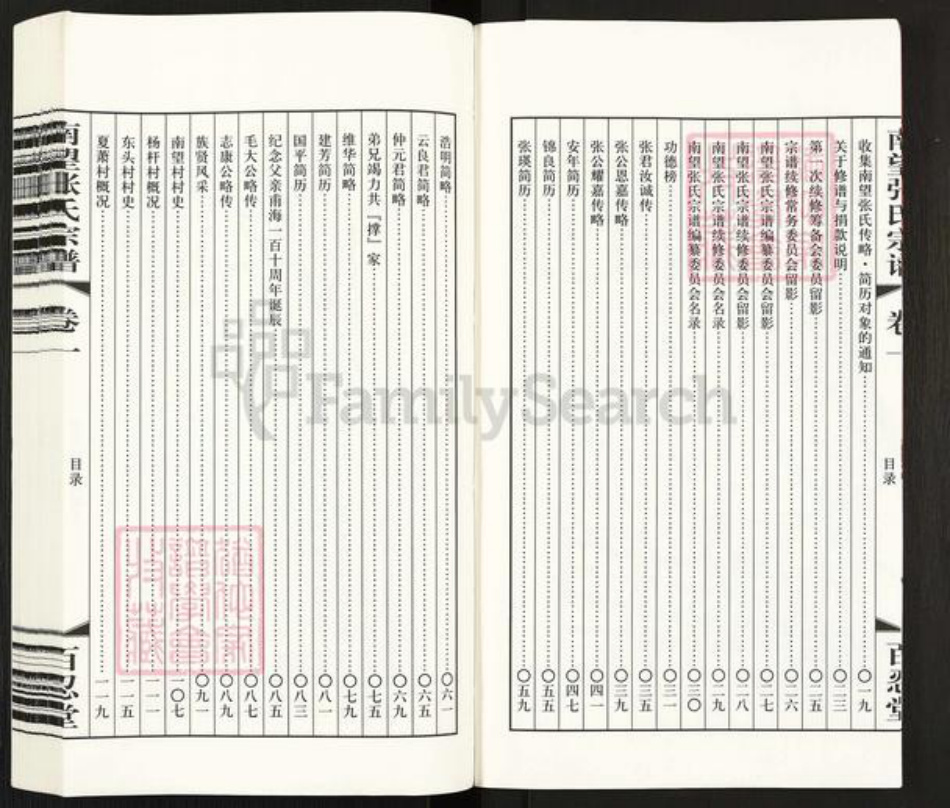 南望张氏宗谱 卷一 目录 百忍堂
收集南望张氏传略·简历对象的通知……〇一九
关于修谱与捐款说明……〇二三
第一次续修筹备会委员留影……〇二五
宗谱续修常务委员会留影……〇二六
南望张氏宗谱编纂委员会留影……〇二七
南望张氏宗谱续修委员会留影……〇二八
南望张氏宗谱续修委员会名录……〇二九
南望张氏宗谱编纂委员会名录……〇三〇
功德榜……〇三一
张君汝诚传……〇三五
张公恩嘉传略……〇三九
张公耀嘉传略……〇四一
安年简历……〇四七
锦良简历……〇五五
张瑛简历……〇五九
浩明简略……〇六一
云良君简略……〇六五
仲元君简略……〇六九
弟兄竭力共『撑』家……〇七五
维华简略……〇七九
建芳简历……〇八一
国平简历……〇八三
纪念父亲甫海一百十周年诞辰……〇八五
毛大公略传……〇八七
志康公略传……〇八九
族贤风采……〇九一
南望村村史……一〇七
杨杆村概况……一一一
东头村村史……一一五
夏萧村概况……一一九
南望张氏宗谱 卷一 目录 百忍堂
FamilySearch